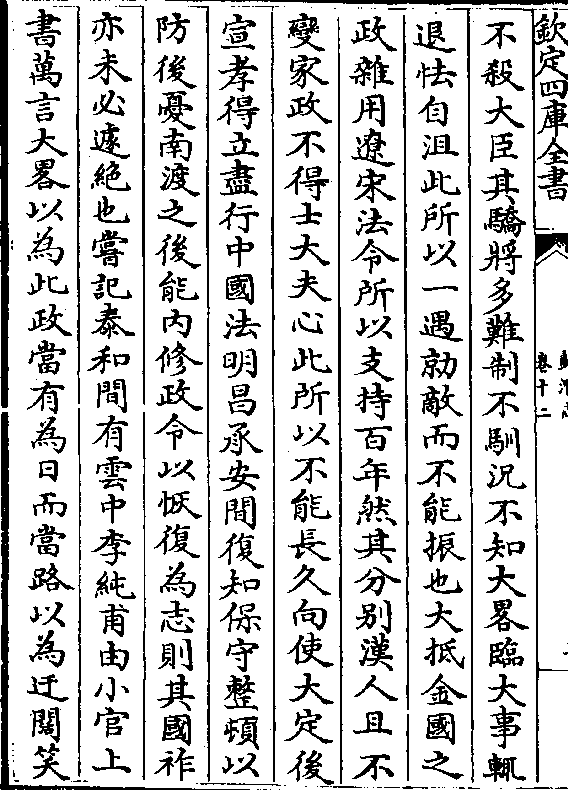 欽定四庫全書
卷十二
不殺大臣其驕將多難制不馴況不知大畧臨大事輒
退怯自沮此所以一遇勍敵而不能振也大抵金國之
政雜用遼宋法令所以支持百年然其分别漢人且不
變家政不得士大夫心此所以不能長久向使大定後
宣孝得立盡行中國法明昌承安間復知保守整頓以
防後憂南渡之後能内修政令以恢復為志則其國祚
亦未必遽絶也嘗記泰和間有雲中李純甫由小官上
書萬言大畧以為此政當有為日而當路以為迂闊笑